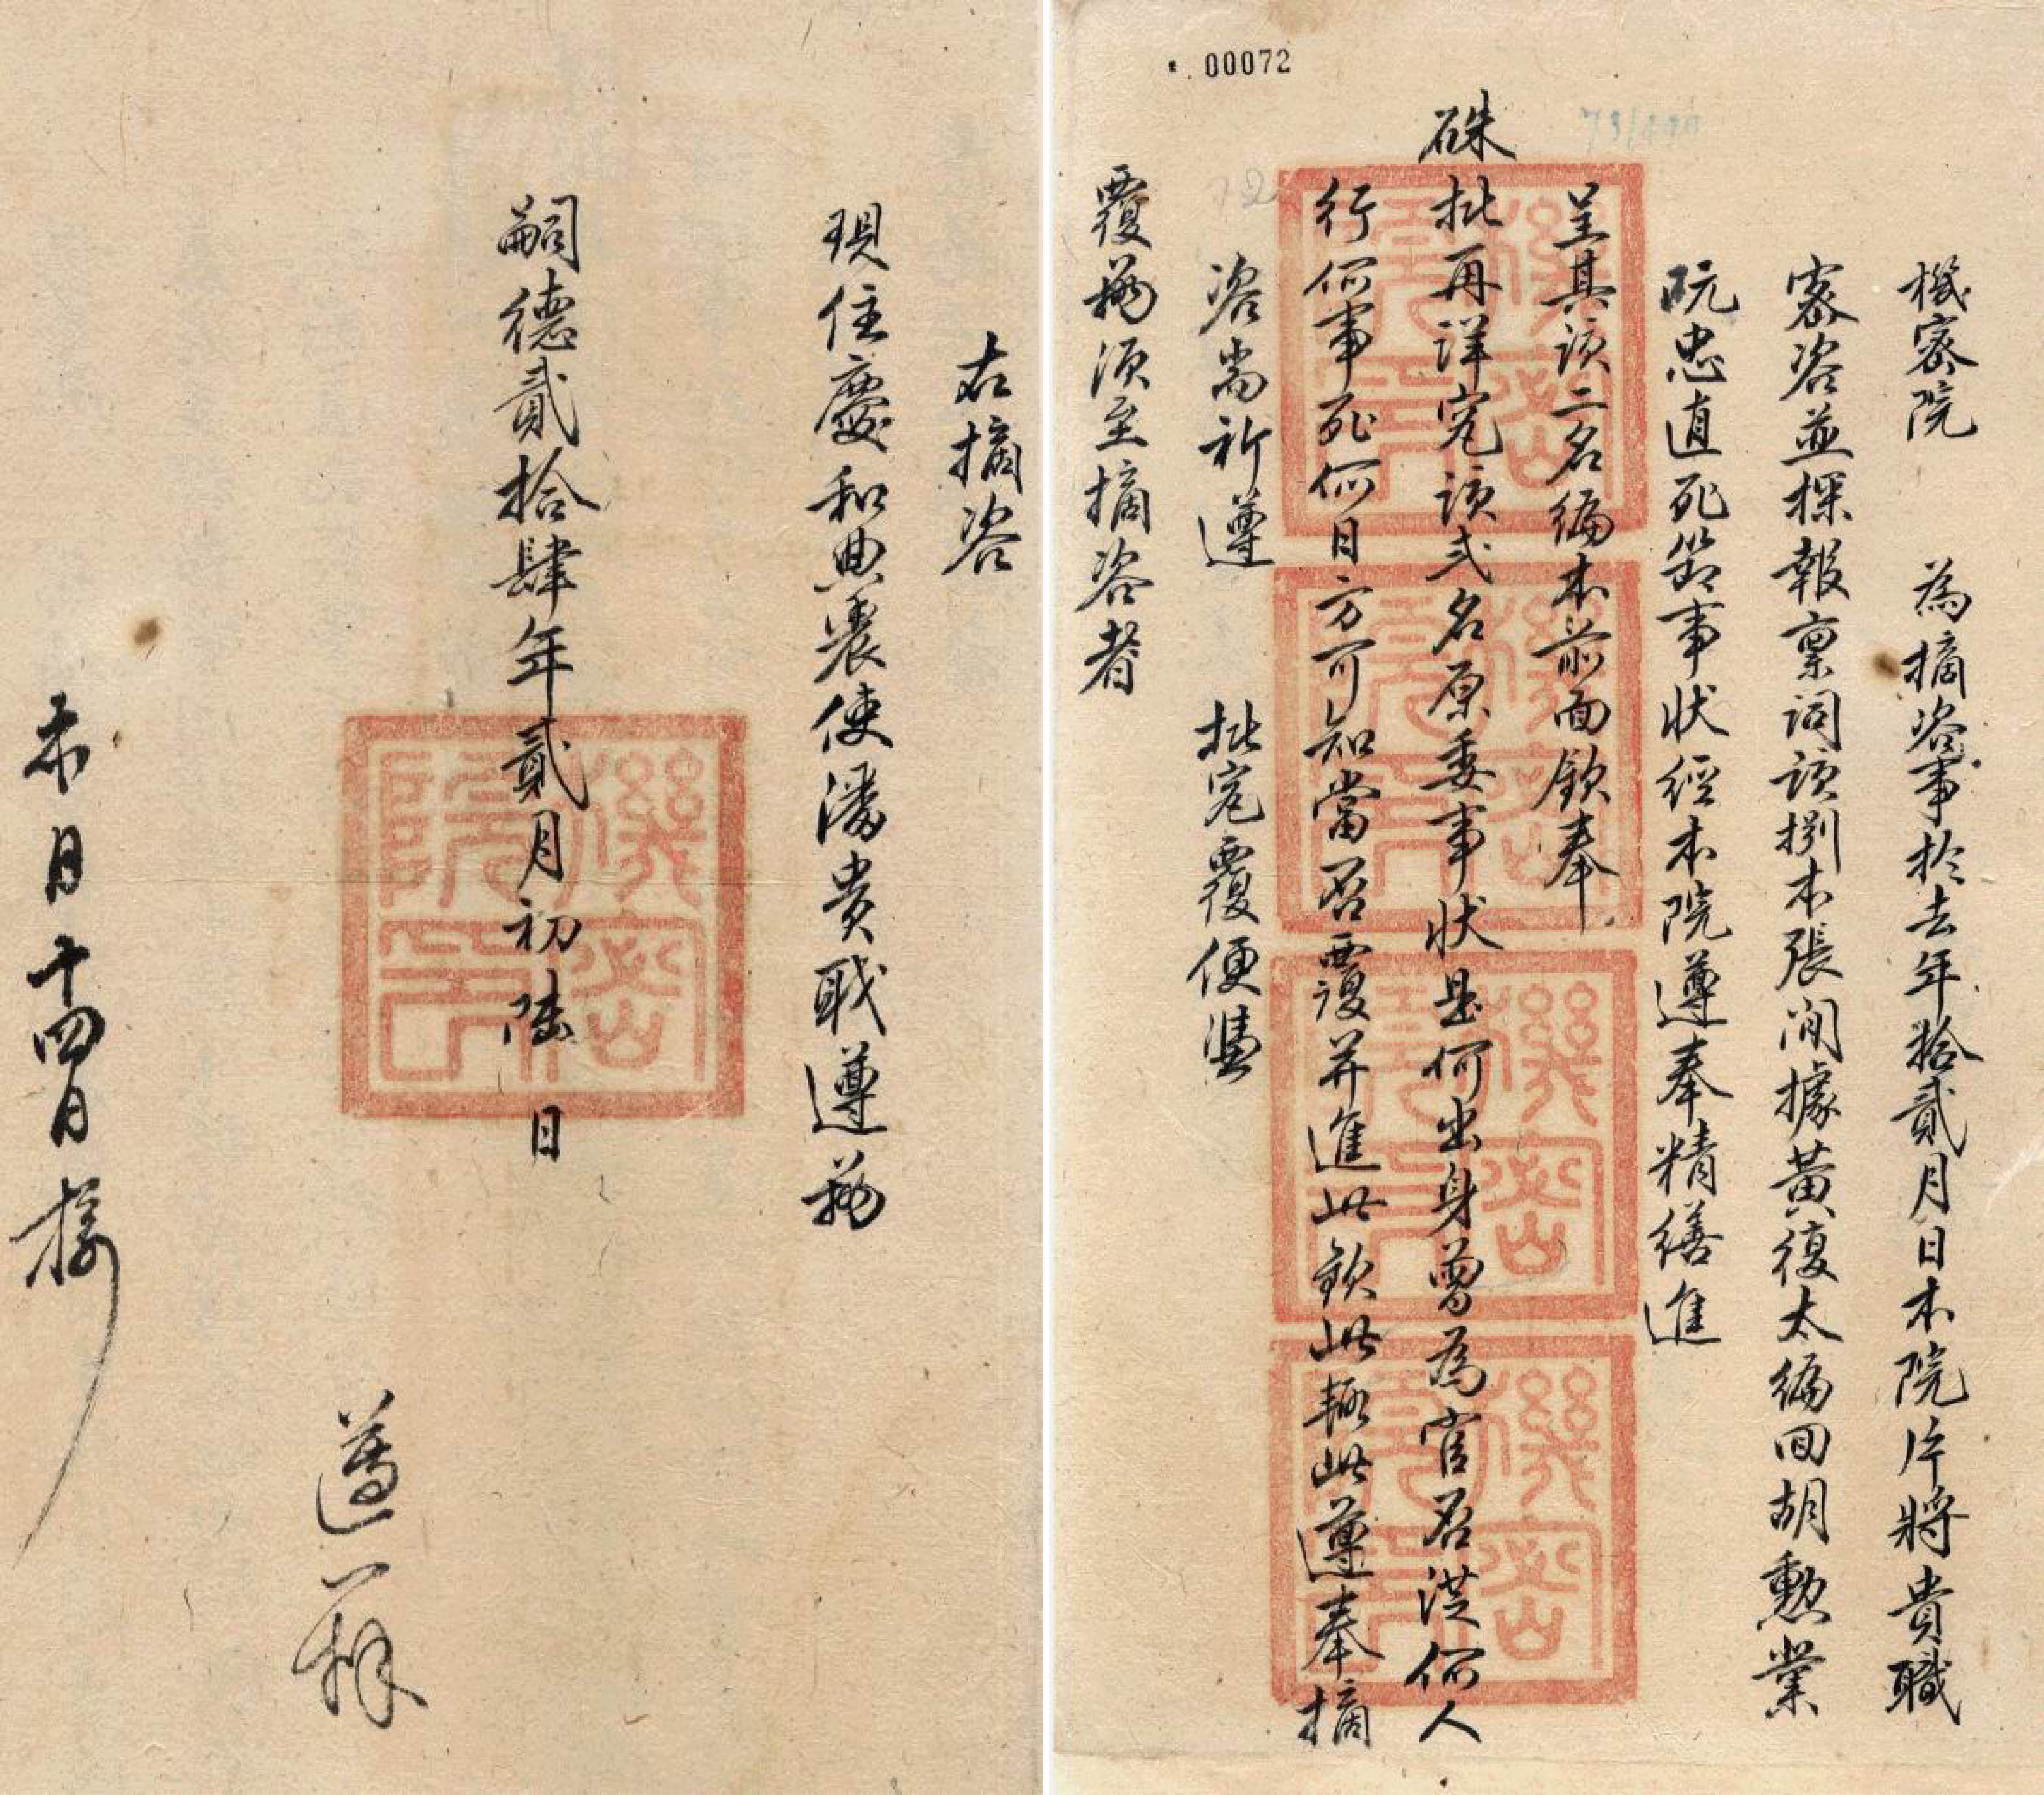 00072
機密院　為摘咨事於去年拾貳月日本院片將貴職
密咨並探報禀詞該捌本張闸據黃復太編回胡勳業
阮忠直死節事狀經本院遵奉精繕進
呈其該二名編本前面欽奉
硃批再詳究該弍名原委事狀是何出身曾為官否洪何人
行何事死何日方可知當否覆并進此欽此輒此遵奉摘
咨尚祈遵　批究覆便憑
覆務須至摘咨者
右摘咨
現住慶和典農使潘貴戝遵務
嗣德貳拾肆年貳月初陸日
機密院印
本月十四日接